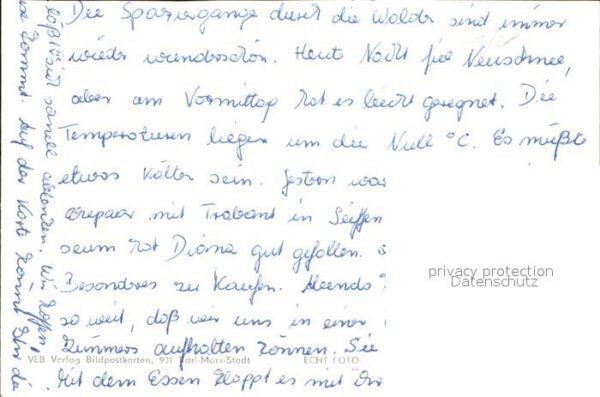 Die Spaziergänge durch die Wälder sind immer
wieder wunderschön. Heute Nacht fiel Neuschnee,
aber am Vormittag hat es leicht geregnet. Die
Temperaturen liegen um die Null °C. Es müßte
etwas kälter sein. Gestern war
mit Trabant in Seiffen
hat Diana gut gefallen.
Besonderes zu kaufen. Abends
so weit, daß wir uns in einer
Zimmers aufhalten können. Sie
VEB Verlag Bildpostkarten, 901 Karl-Marx-Stadt ECHT FOTO
Mit dem Essen klappt es mit
läßt sich schnell ablenken. Wir hoffen,
kommt. Auf der Karte könnt Ihr die
privacy protection
Datenschutz